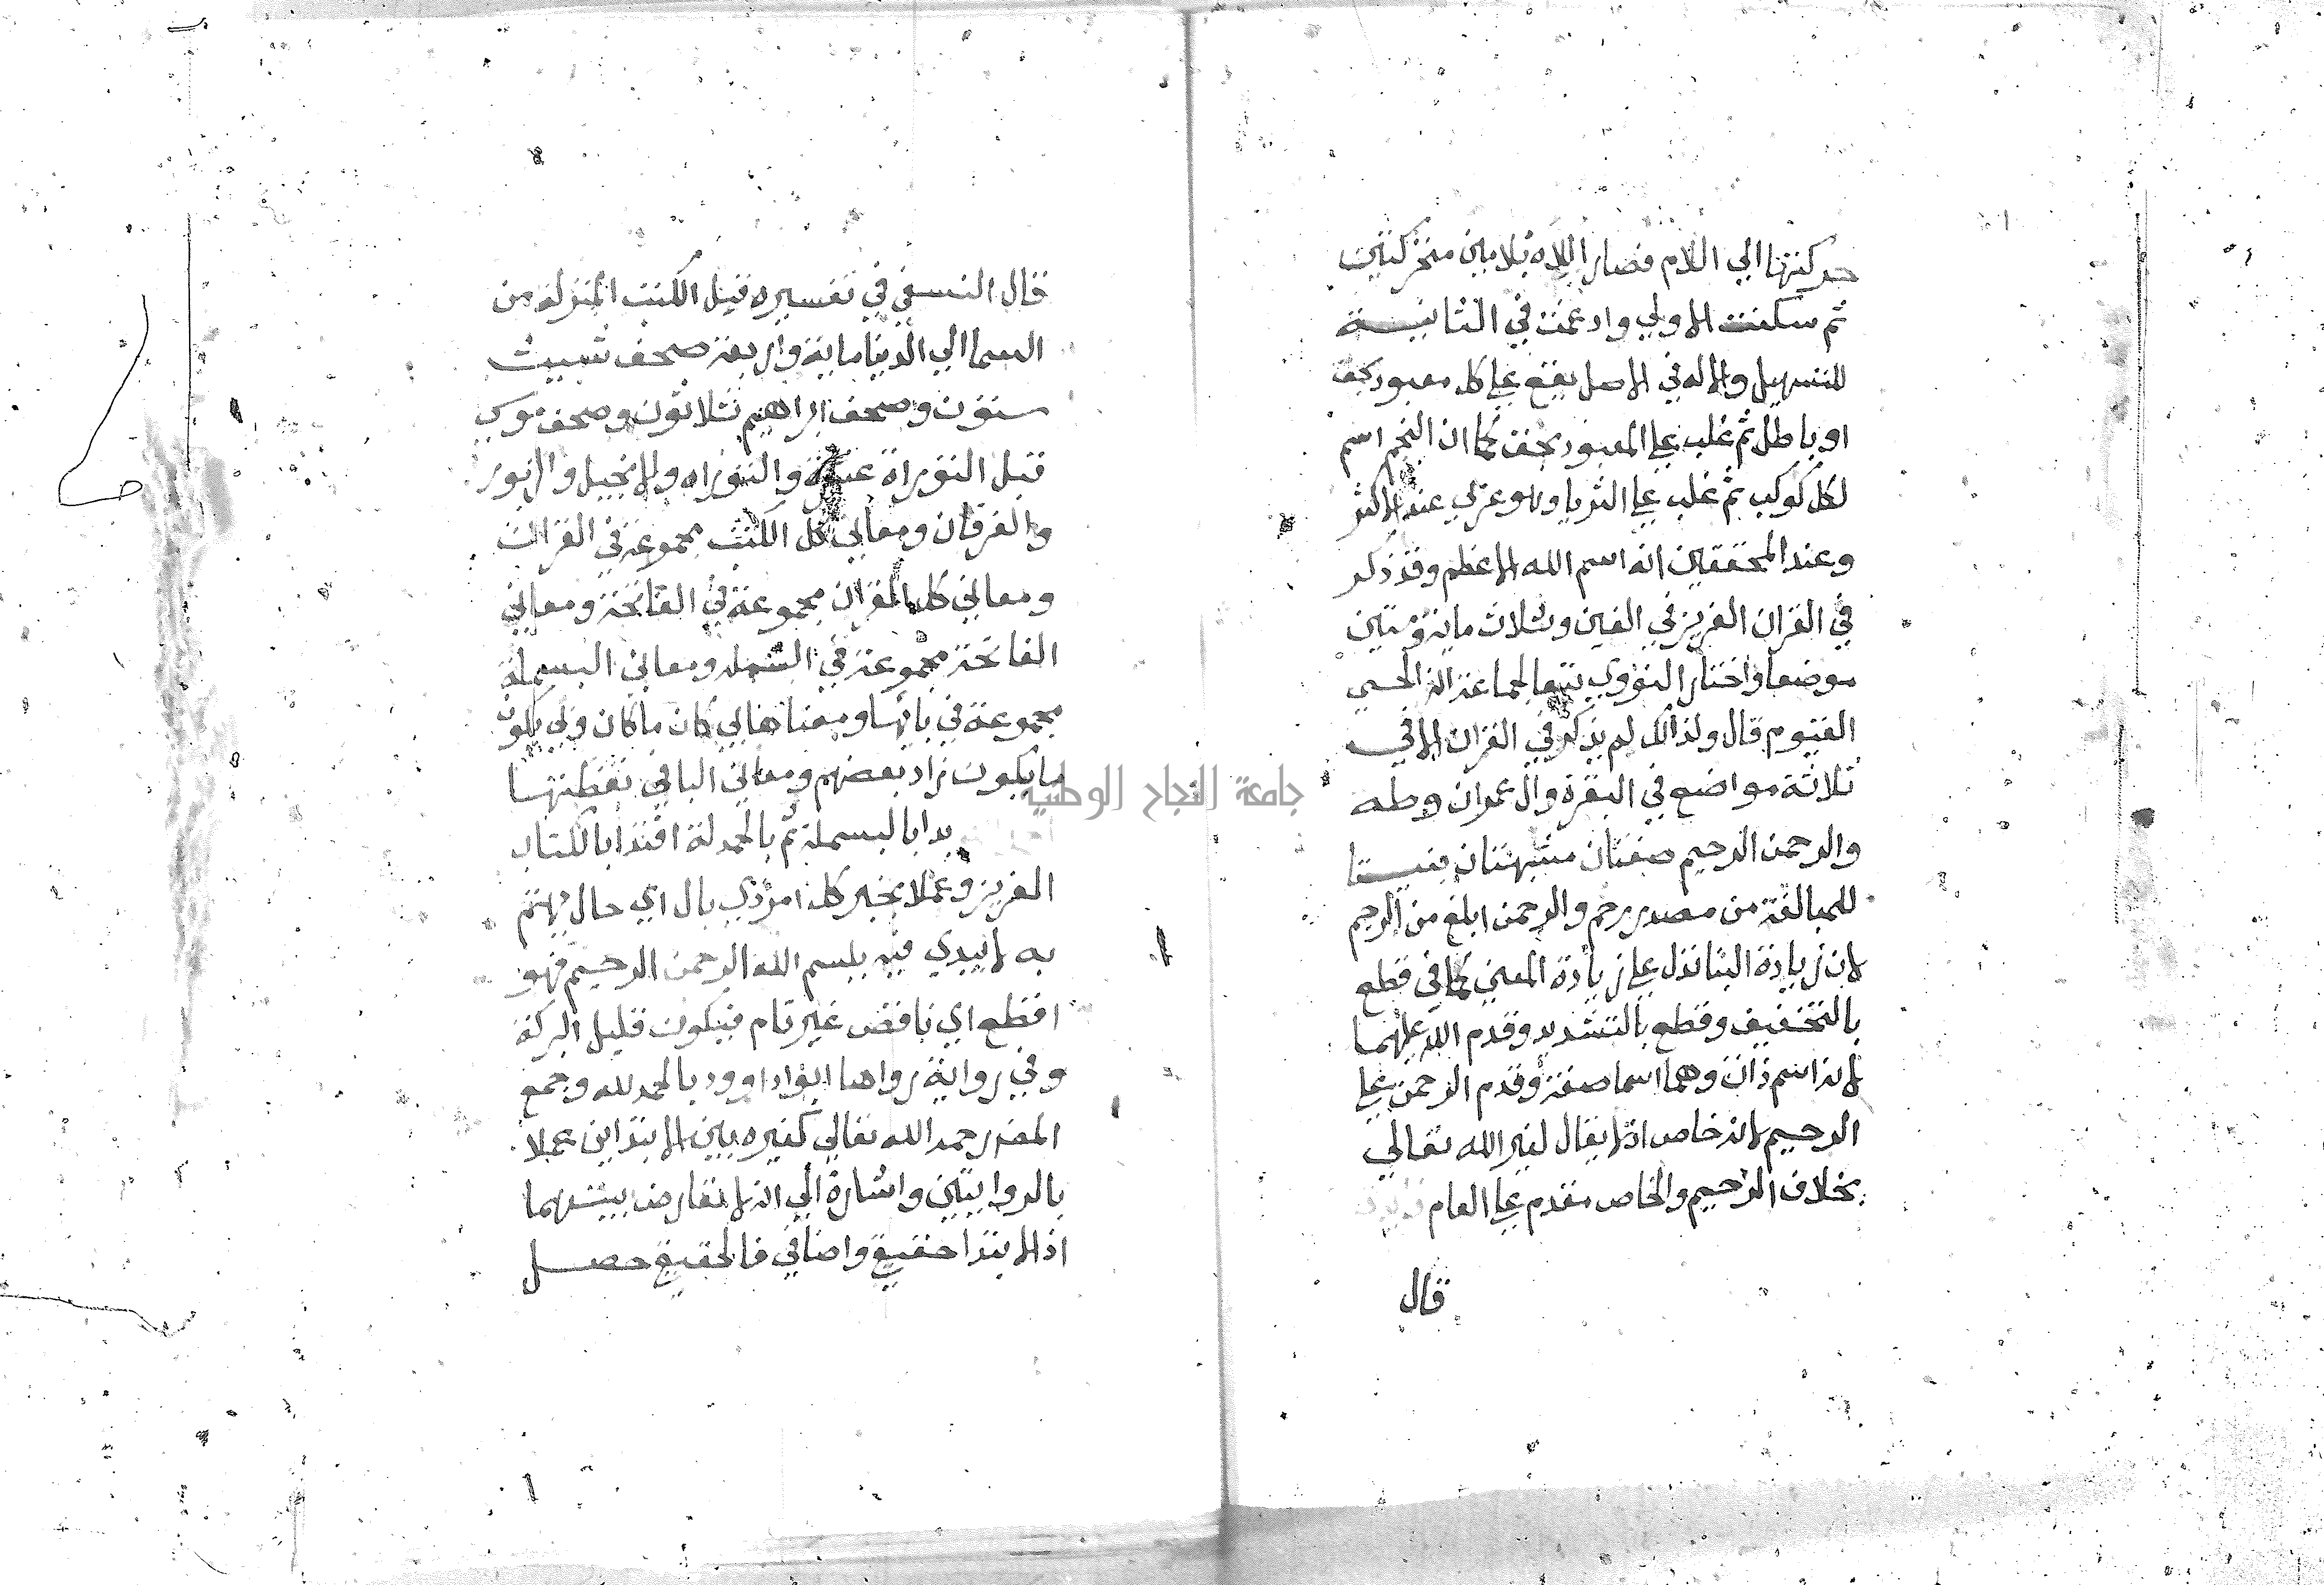 حركتها الي اللام فصار اللاه بلامين متحركتين
ثم سكنت الاولي وادغمت في الثانيــة
للتسهيل والاله في الاصل يقع علي كل معبود بحق
او باطل ثم غلب علي المعبود بحق كما ان النجم اسم
لكل كوكب ثم غلب علي الثريا وهو عربي عند الاكثر
وعند المحققين انه اسم الله الاعظم وقد ذكر
في القران العزيز في الفين وثلاث ماية وستين
موضعا واختار النووي تبعا لجماعة انه الحــي
القيوم قال ولذالك لم يذكر في القران الا في
ثلاثة مواضع في البقرة وال عمران وطه
والرحمن الرحيم صفتان مشبهتان بنيــتا
للمبالغة من مصدر رحم والرحمن ابلغ من الرحيم
لان زيادة البنا تدل علي زيادة المعني كما في قطع
بالتخفيف وقطع بالتشديد وقدم الله عليهما
لانه اسم ذات وهما اسما صفة وقدم الرحمن علي
الرحيم لانه خاص اذ لا يقال لغير الله تعالي
بخلاف الرحيم والخاص مقدم علي العام
قال
قال النسفي في تفسيره قيل الكتب المنزلة من
السما الي الدنيا ماية واربعة صحف شيث
ستون وصحف ابراهيم ثلاثون وصحف موسي
قبل التوراة عشرة والتوراه والانجيل والزبور
والفرقان ومعاني كل الكتب مجموعة في القران
ومعاني كل القران مجموعة في الفاتحة ومعاني
الفاتحة مجموعة في البسمله ومعاني البسملة
مجموعة في بائها ومعناها بي كان ما كان وبي يكون
ما يكون زاد بعضهم ومعاني البا في نقطتها
بدا بالبسملة ثم بالحمدلة اقتدا بالكتاب
العزيز وعملا بخبر كل امر ذي بال اي حال يهتم
به لا يبدي فيه ببسم الله الرحمن الرحيم فهو
اقطع اي ناقص غير تام فيكون قليل البركة
وفي رواية رواها ابوا داوود بالحمد لله وجمع
المص رحمه الله تعالي كغيره بين الابتداين عملا
بالروايتين واشارة الي انه لا تعارض بينهما
اذ الابتدا حقيقي واضافي فالحقيقي حصــل
جامعة النجاح الوطنية